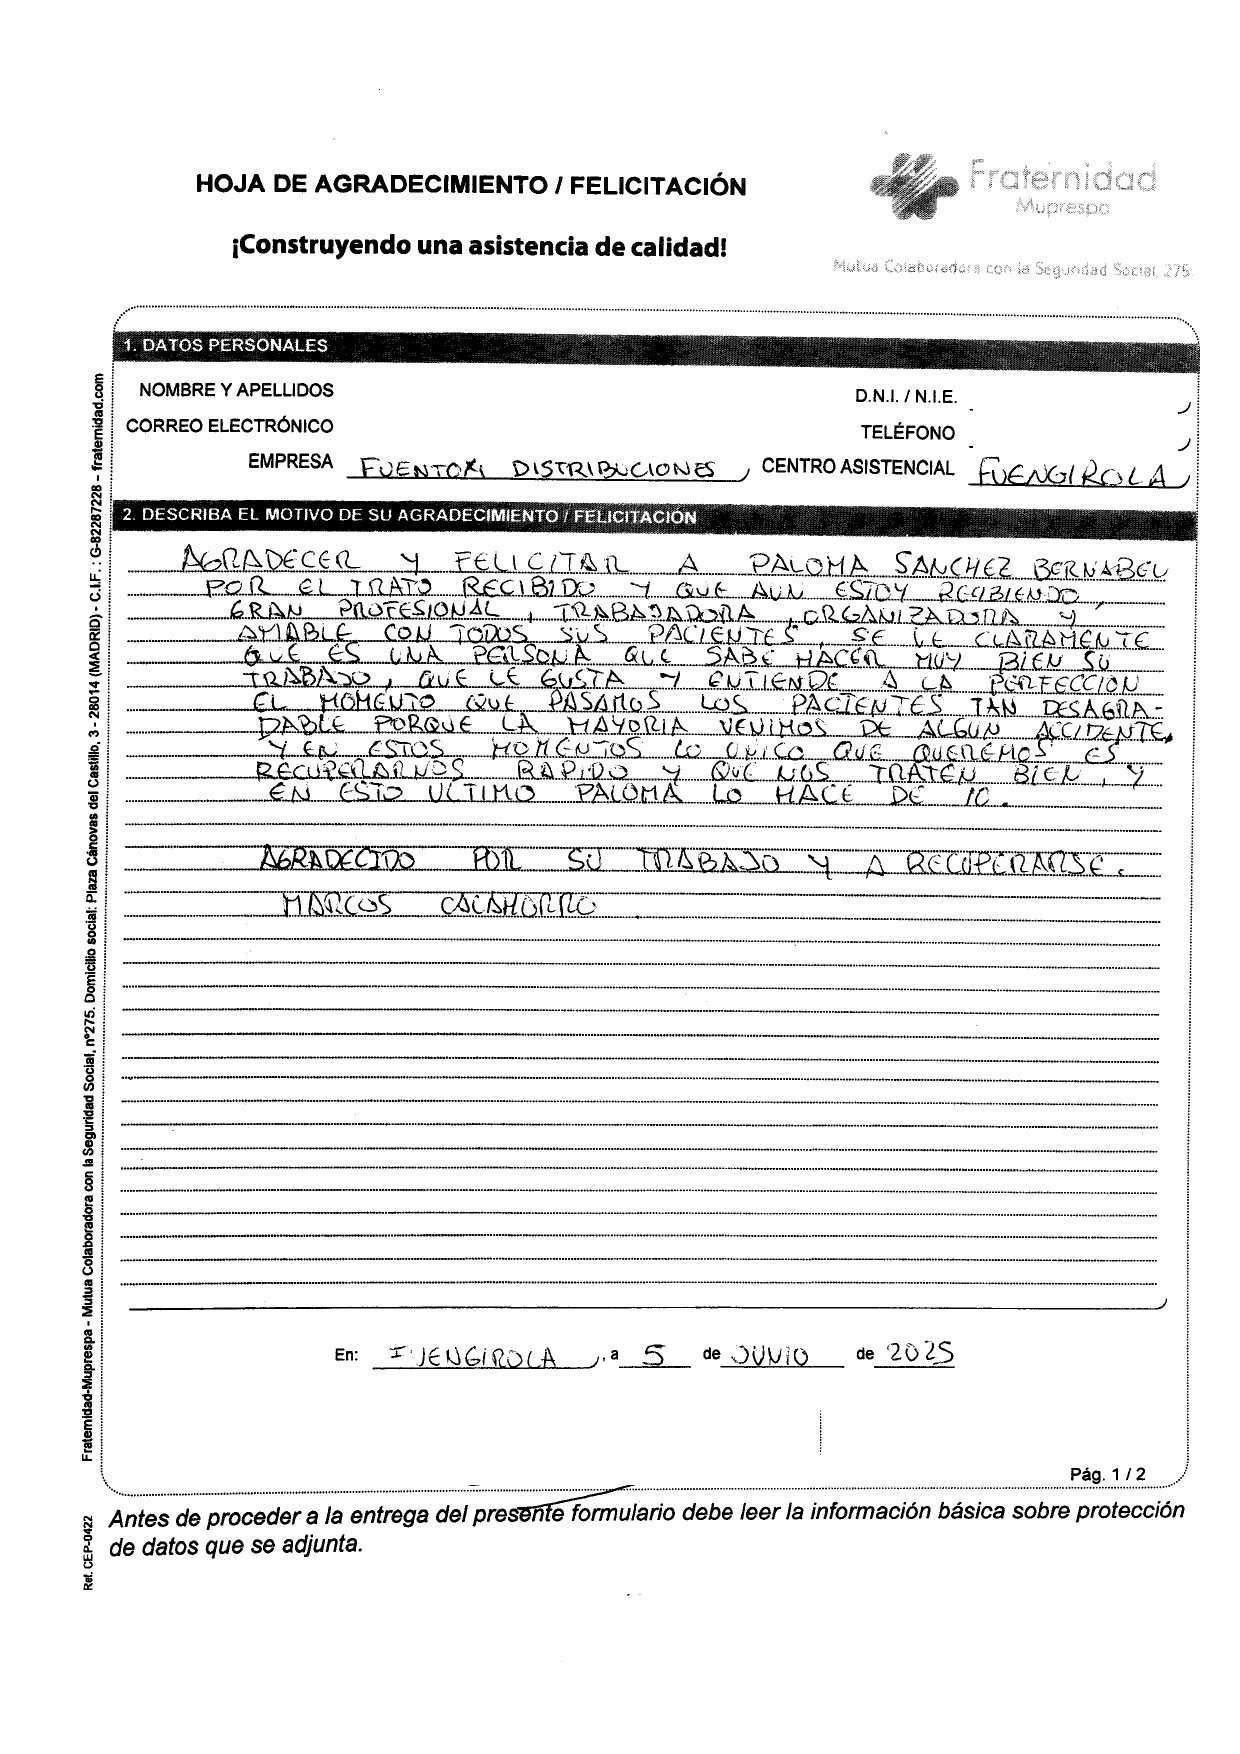 HOJA DE AGRADECIMIENTO / FELICITACIÓN
¡Construyendo una asistencia de calidad!
Fraternidad
Muprespa
Mutua Colaboradora con la Seguridad Social, 275.
1. DATOS PERSONALES
NOMBRE Y APELLIDOS
D.N.I. / N.I.E.
CORREO ELECTRÓNICO
TELÉFONO
EMPRESA DISTRIBUCIONES CENTRO ASISTENCIAL FUENGIROLA
2. DESCRIBA EL MOTIVO DE SU AGRADECIMIENTO / FELICITACIÓN
AGRADECER Y FELICITAR A PALOMA SANCHEZ BERNABEU
POR EL TRATO RECIBIDO Y QUE AUN ESTOY RECIBIENDO,
GRAN PROFESIONAL, TRABAJADORA, ORGANIZADORA Y
AMABLE CON TODOS SUS PACIENTES, SE LE CLARAMENTE
QUE ES UNA PERSONA QUE SABE HACER MUY BIEN SU
TRABAJO, QUE LE GUSTA Y ENTIENDE A LA PERFECCION
EL MOMENTO QUE PASAMOS LOS PACIENTES TAN DESAGRA-
DABLE PORQUE LA MAYORIA VENIMOS DE ALGUN ACCIDENTE,
Y EN ESTOS MOMENTOS LO UNICO QUE QUEREMOS ES
RECUPERARNOS RAPIDO Y QUE NOS TRATEN BIEN, Y
EN ESTO ULTIMO PALOMA LO HACE DE 10.
AGRADECIDO POR SU TRABAJO Y A RECUPERARSE.
MARCOS CALAHORRO
En: FUENGIROLA, a 5 de JUNIO de 2025
Pág. 1 / 2
Antes de proceder a la entrega del presente formulario debe leer la información básica sobre protección
de datos que se adjunta.
Fraternidad-Muprespa - Mutua Colaboradora con la Seguridad Social, nº275. Domicilio social: Plaza Cánovas del Castillo, 3 - 28014 (MADRID) - C.I.F. : G-82287228 - fraternidad.com
Ref. CEP-0422